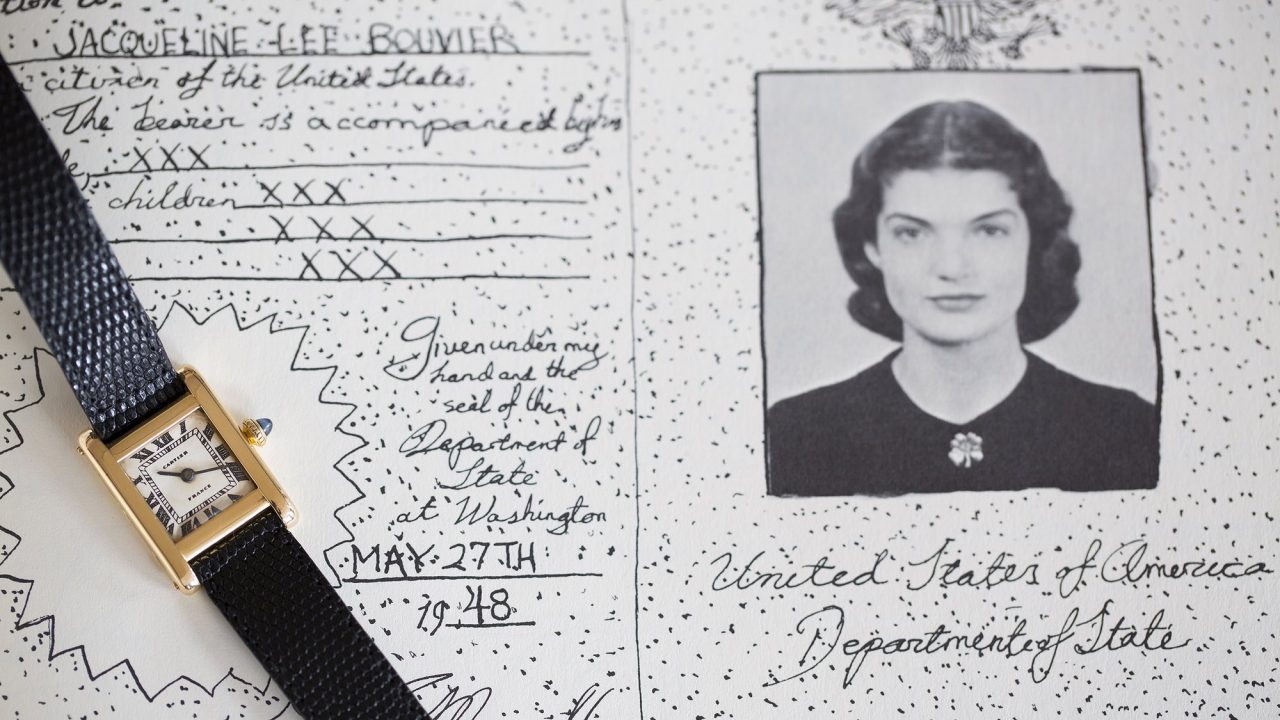 JACQUELINE LEE BOUVIER
citizen of the United States.
The bearer is accompanied by his
XXX
children XXX
XXX
XXX
Given under my
hand and the
seal of the
Department of
State
at Washington
MAY 27TH
1948
CARTIER
FRANCE
United States of America
Department of State